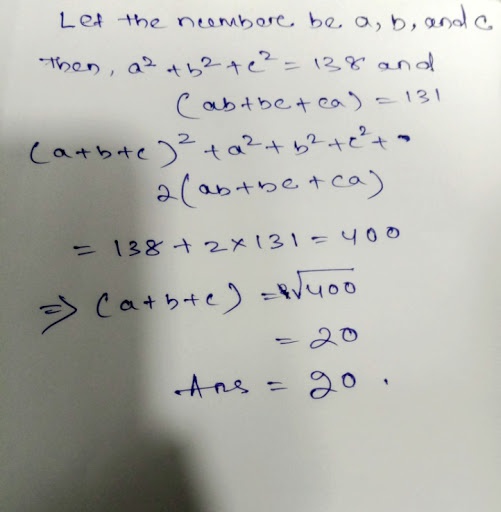 Let the numbers be a, b, and c
Then, a² + b² + c² = 138 and
(ab+bc+ca) = 131
(a+b+c)² + a² + b² + c² +
2(ab+bc+ca)
= 138 + 2×131 = 400
⇒ (a+b+c) = √400
= 20
Ans = 20.